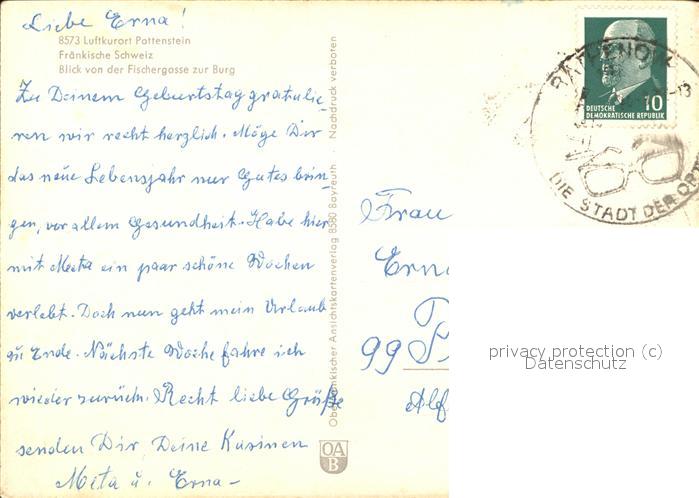 Liebe Erna!
8573 Luftkurort Pottenstein
Fränkische Schweiz
Blick von der Fischergasse zur Burg
Zu Deinem Geburtstag gratulie-
ren wir recht herzlich. Möge Dir
das neue Lebensjahr nur Gutes brin-
gen, vor allem Gesundheit. Habe hier
mit Meta ein paar schöne Wochen
verlebt. Doch nun geht mein Urlaub
zu Ende. Nächste Woche fahre ich
wieder zurück. Recht liebe Grüße
senden Dir Deine Kusinen
Meta u. Erna -
Oberfränkischer Ansichtskartenverlag 8580 Bayreuth Nachdruck verboten
OA
B
DEUTSCHE
DEMOKRATISCHE REPUBLIK
10
RATHENOW
-13
DIE STADT DER OPT
Frau
Ern
99 P
privacy protection (c)
Datenschutz